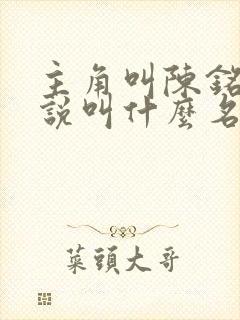 主角叫陳銘
說叫什麼名
菜頭大哥